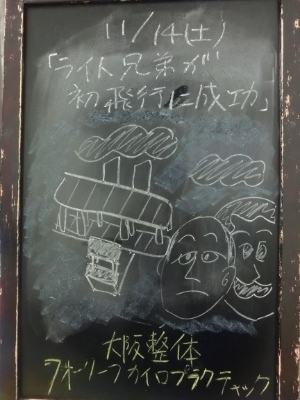 11/14(土)
「ライト兄弟が
初飛行に成功」
大阪整体
フォーリーフカイロプラクティック